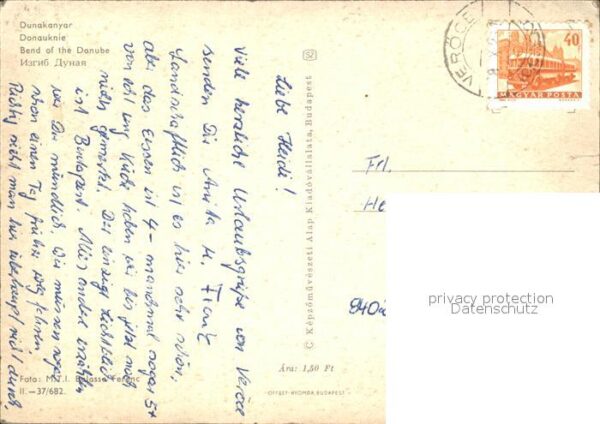 Dunakanyar
Donauknie
Bend of the Danube
Изгиб Дуная
Liebe Heidi!
Viele herzliche Urlaubsgrüße von Veröce
senden Dir Anita u. Frank
Landschaftlich ist es hier sehr schön,
aber das Essen ist 4 – manchmal sogar 5+
von und Küche haben wir bis jetzt noch
nichts gemerkt. Der einzige Lichtblick
ist Budapest. Alles andere erzählen
wir Dir mündlich. Wir müssen sogar
schon einen Tag früher wegfahren
sieht man hier überhaupt nicht durch.
Foto: M.T.I. Balassa Ferenc
II.—37/682.
© Képzőművészeti Alap Kiadóvállalata, Budapest
Ára: 1,50 Ft
OFFSET-NYOMDA BUDAPEST
VERŐCE
40
MAGYAR POSTA
Frl.
He
privacy protection
Datenschutz